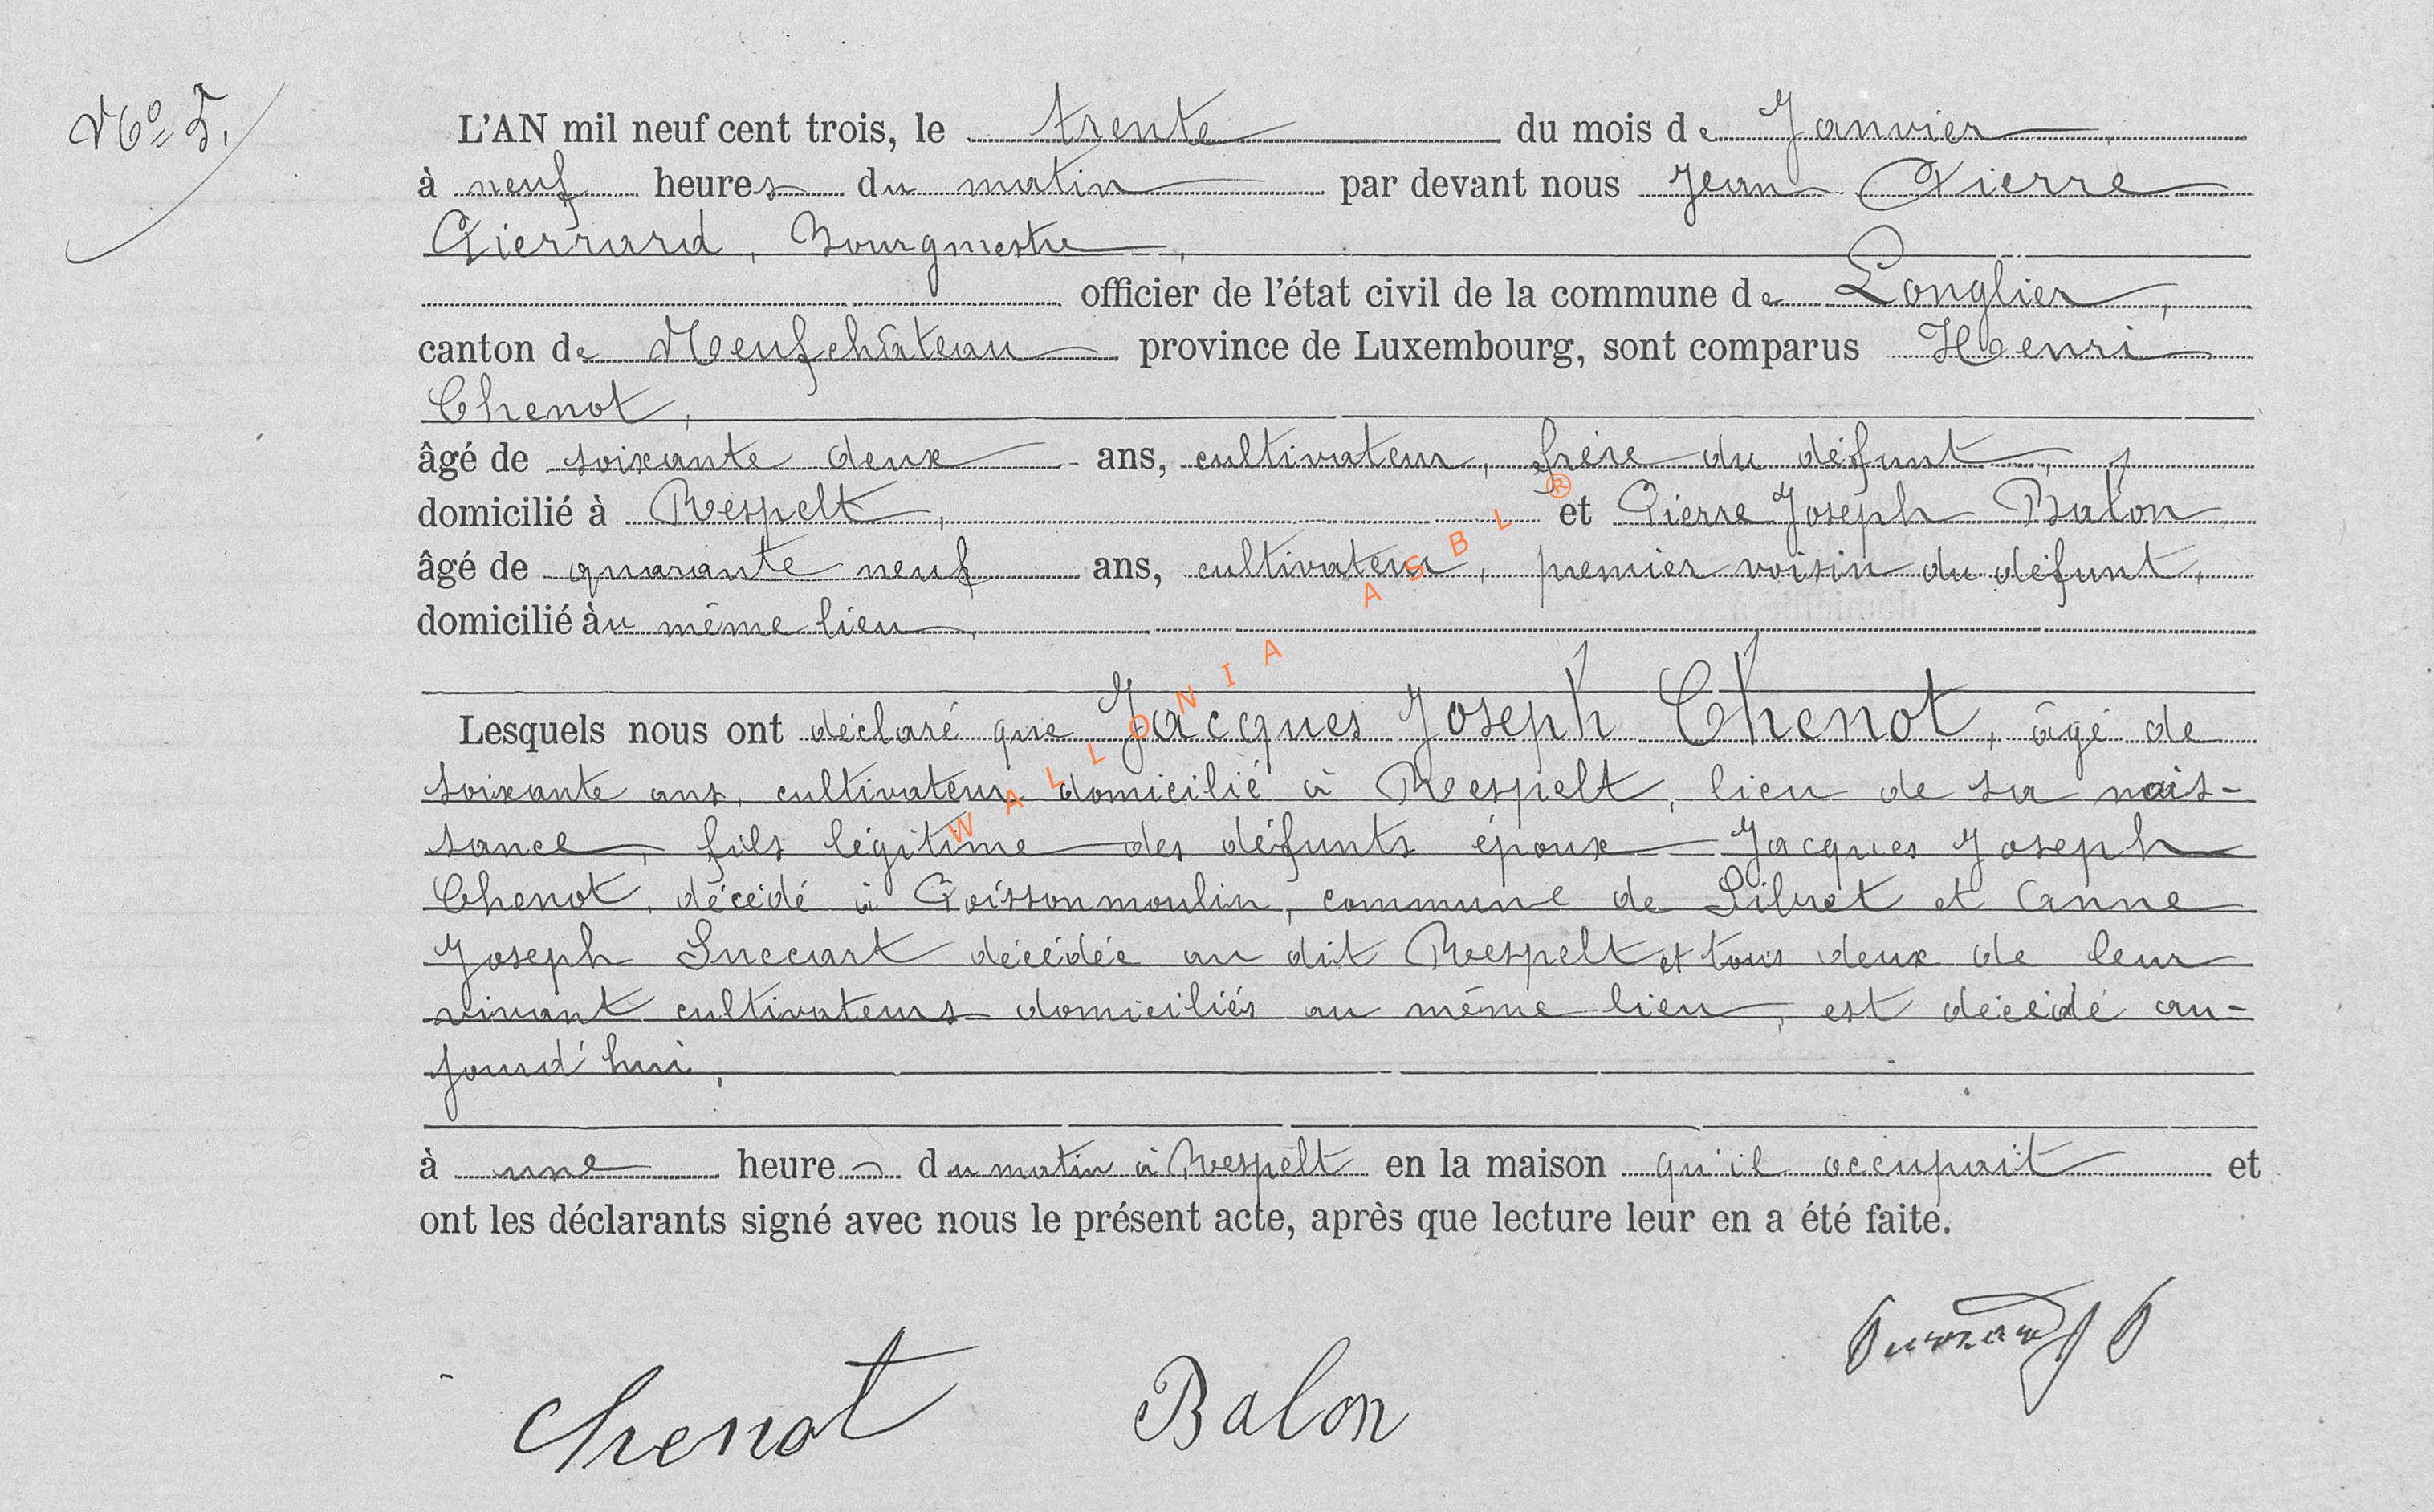 Nº 5.
L'AN mil neuf cent trois, le trente du mois de Janvier,
à neuf heures du matin par devant nous Jean Pierre
Pierrard, Bourgmestre,
officier de l'état civil de la commune de Longlier,
canton de Neufchâteau province de Luxembourg, sont comparus Henri
Chenot,
âgé de soixante deux ans, cultivateur, frère du défunt,
domicilié à Respelt, et Pierre Joseph Balon
âgé de quarante neuf ans, cultivateur, premier voisin du défunt,
domicilié àu même lieu,
Lesquels nous ont déclaré que Jacques Joseph Chenot, âgé de
soixante ans, cultivateur domicilié à Respelt, lieu de sa nais-
sance, fils légitime des défunts époux Jacques Joseph
Chenot, décédé à Poissonmoulin, commune de Sibret et Anne
Joseph Succart décédée au dit Respelt et tous deux de leur
vivant cultivateurs domiciliés au même lieu, est décédé au-
jourd'hui,
à une heure du matin à Respelt en la maison qu'il occupait et
ont les déclarants signé avec nous le présent acte, après que lecture leur en a été faite.
Chenot Balon Pierrard JP
WALLONIA ASBL ®